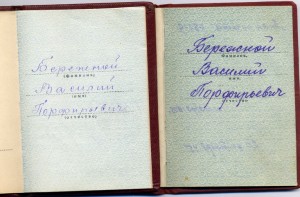 Бережной
(фамилия)
Василий
(имя)
Порфирьевич
(отчество)
Бережной
Фамилия
Василий
имя
Порфирьевич
отчество